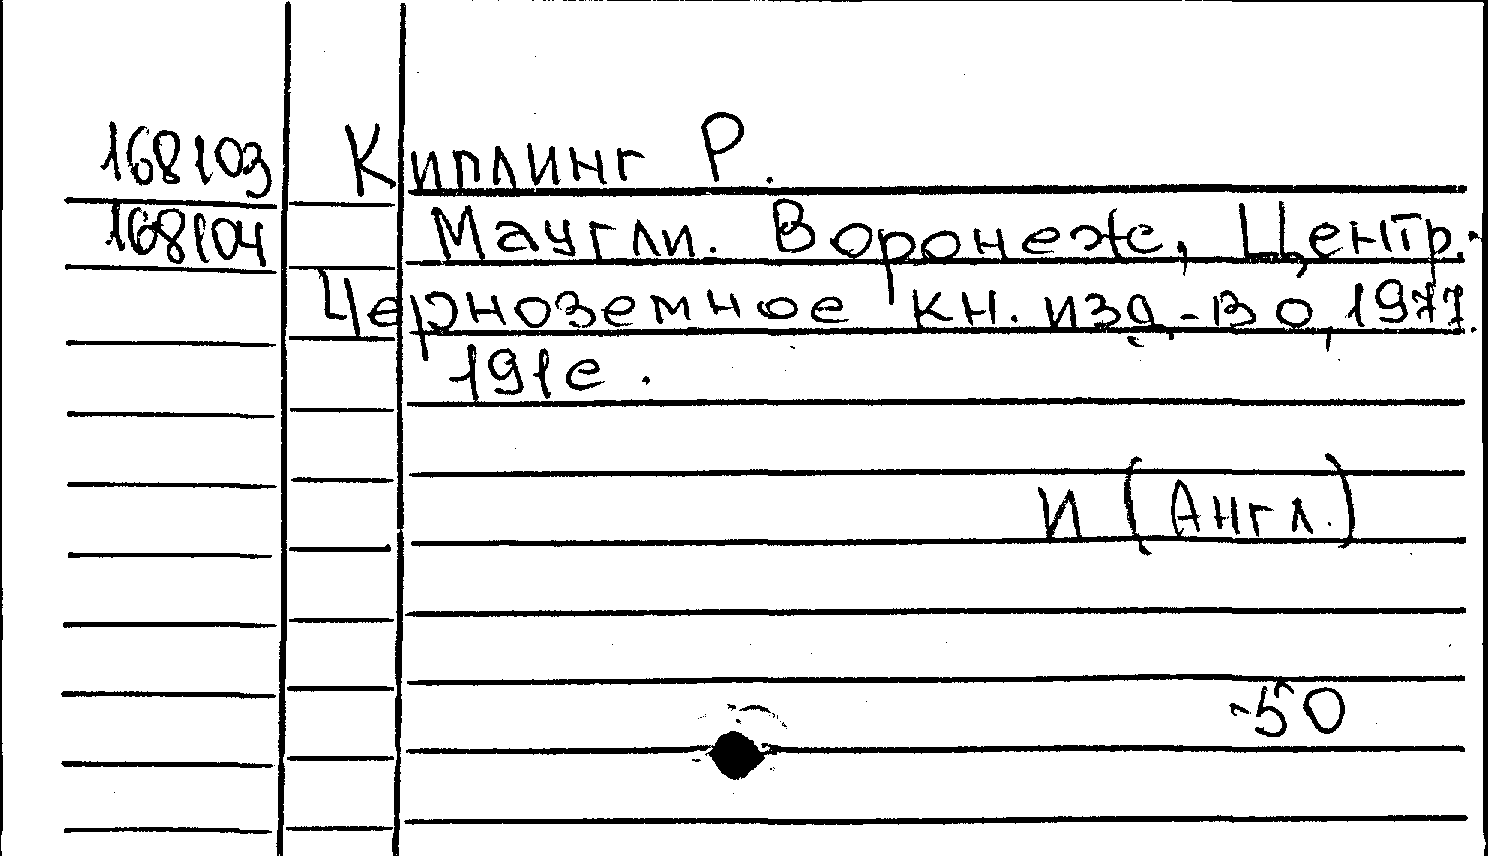 168103 Киплинг Р.
168104 Маугли. Воронеж, Центр.-
Черноземное кн. изд-во, 1977.
191 с.
И (Англ.)
-50